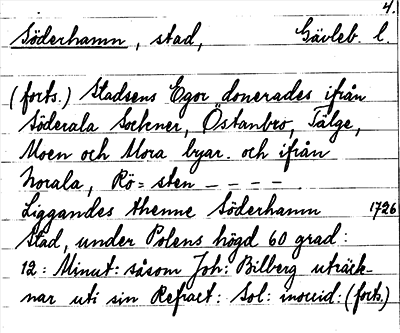 4.
Söderhamn, stad, Gävleb. l.
(forts.) Stadsens Egor donerades ifrån
Söderala Sockner, Östanbro, Tälge,
Moen och Mora byar. och ifrån
Norala, Rö= sten – – – –
Liggandes thenne Söderhamn 1726
Stad, under Polens högd 60 grad:
12: Minut: såsom Joh: Bilberg uträck-
nar uti sin Refract: Sol: inoccid: (forts.)